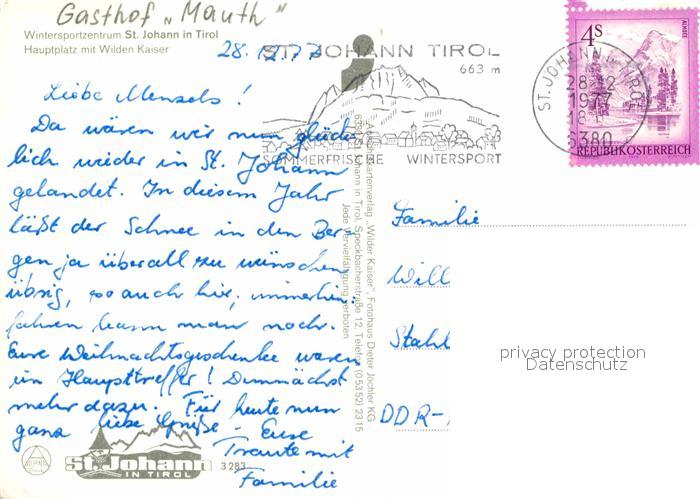 Gasthof „Mauth"
Wintersportzentrum St. Johann in Tirol
Hauptplatz mit Wilden Kaiser
28.12.77
Liebe Mensels!
Da wären wir nun glück-
lich wieder in St. Johann
gelandet. In diesem Jahr
läßt der Schnee in den Ber-
gen ja überall zu wünschen
übrig, so auch hier, immerhin:
fahren kann man noch.
Eure Weihnachtsgeschenke waren
ein Haupttreffer! Demnächst
mehr dazu. Für heute nun
ganz liebe Grüße - Eure
Traute mit
Familie
ST. JOHANN TIROL
663 m
SOMMERFRISCHE WINTERSPORT
ST. JOHANN I. TIROL
28.12
1977
18
6380
4S
ALMSEE
REPUBLIK ÖSTERREICH
Ansichtskartenverlag „Wilder Kaiser", Fotohaus Dieter Jöchler KG
6380 St. Johann in Tirol, Speckbacherstraße 12, Telefon (05352) 2315
Jede Vervielfältigung verboten
Familie
Will
Stahl
DDR-
privacy protection
Datenschutz
St. Johann
IN TIROL
3283